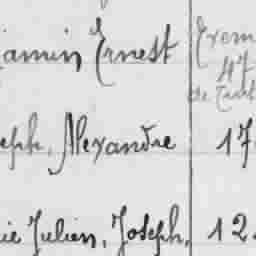 jamin Ernest Exem
47
de Tut
eph, Alexandre 17
ie Julien, Joseph, 12